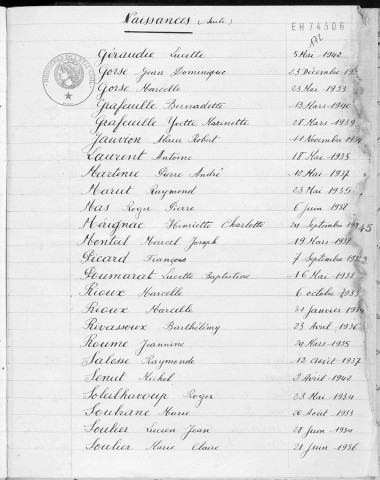 Naissances (suite)
EH74506
172
Géraudie Lucette 5 Mai 1942
Gorse Jean Dominique 23 Décembre
Gorse Marcelle 23 Mai 1933
Grafeuille Bernadette 13 Mars 1940
Grafeuille Yvette Marinette 28 Mars 1939
Jauvion Alain Robert 11 Novembre
Laurent Antoine 18 Mai 1935
Martinie Pierre André 12 Mai 1937
Marut Raymond 23 Mai 1935
Mas Roger Pierre 6 Juin 1938
Mérignac Henriette Charlotte 24 Septembre
Monteil Marcel Joseph 19 Mars 1938
Picard François 7 Septembre
Poumarat Lucette Baptistine 16 Mai 1938
Rioux Marcelle 6 octobre 1933
Rioux Marcelle 31 Janvier 1934
Rivassoux Barthélémy 23 Avril 1936
Roume Jeannine 24 Mars 1935
Salesse Raymonde 12 Août 1937
Senut Michel 2 Avril 1942
Soleilhavoup Roger 23 Mai 1934
Soulrane Marie 20 Août 1933
Soulier Lucien Jean 28 Juin 1934
Soulier Marie Claire 21 Juin 1936